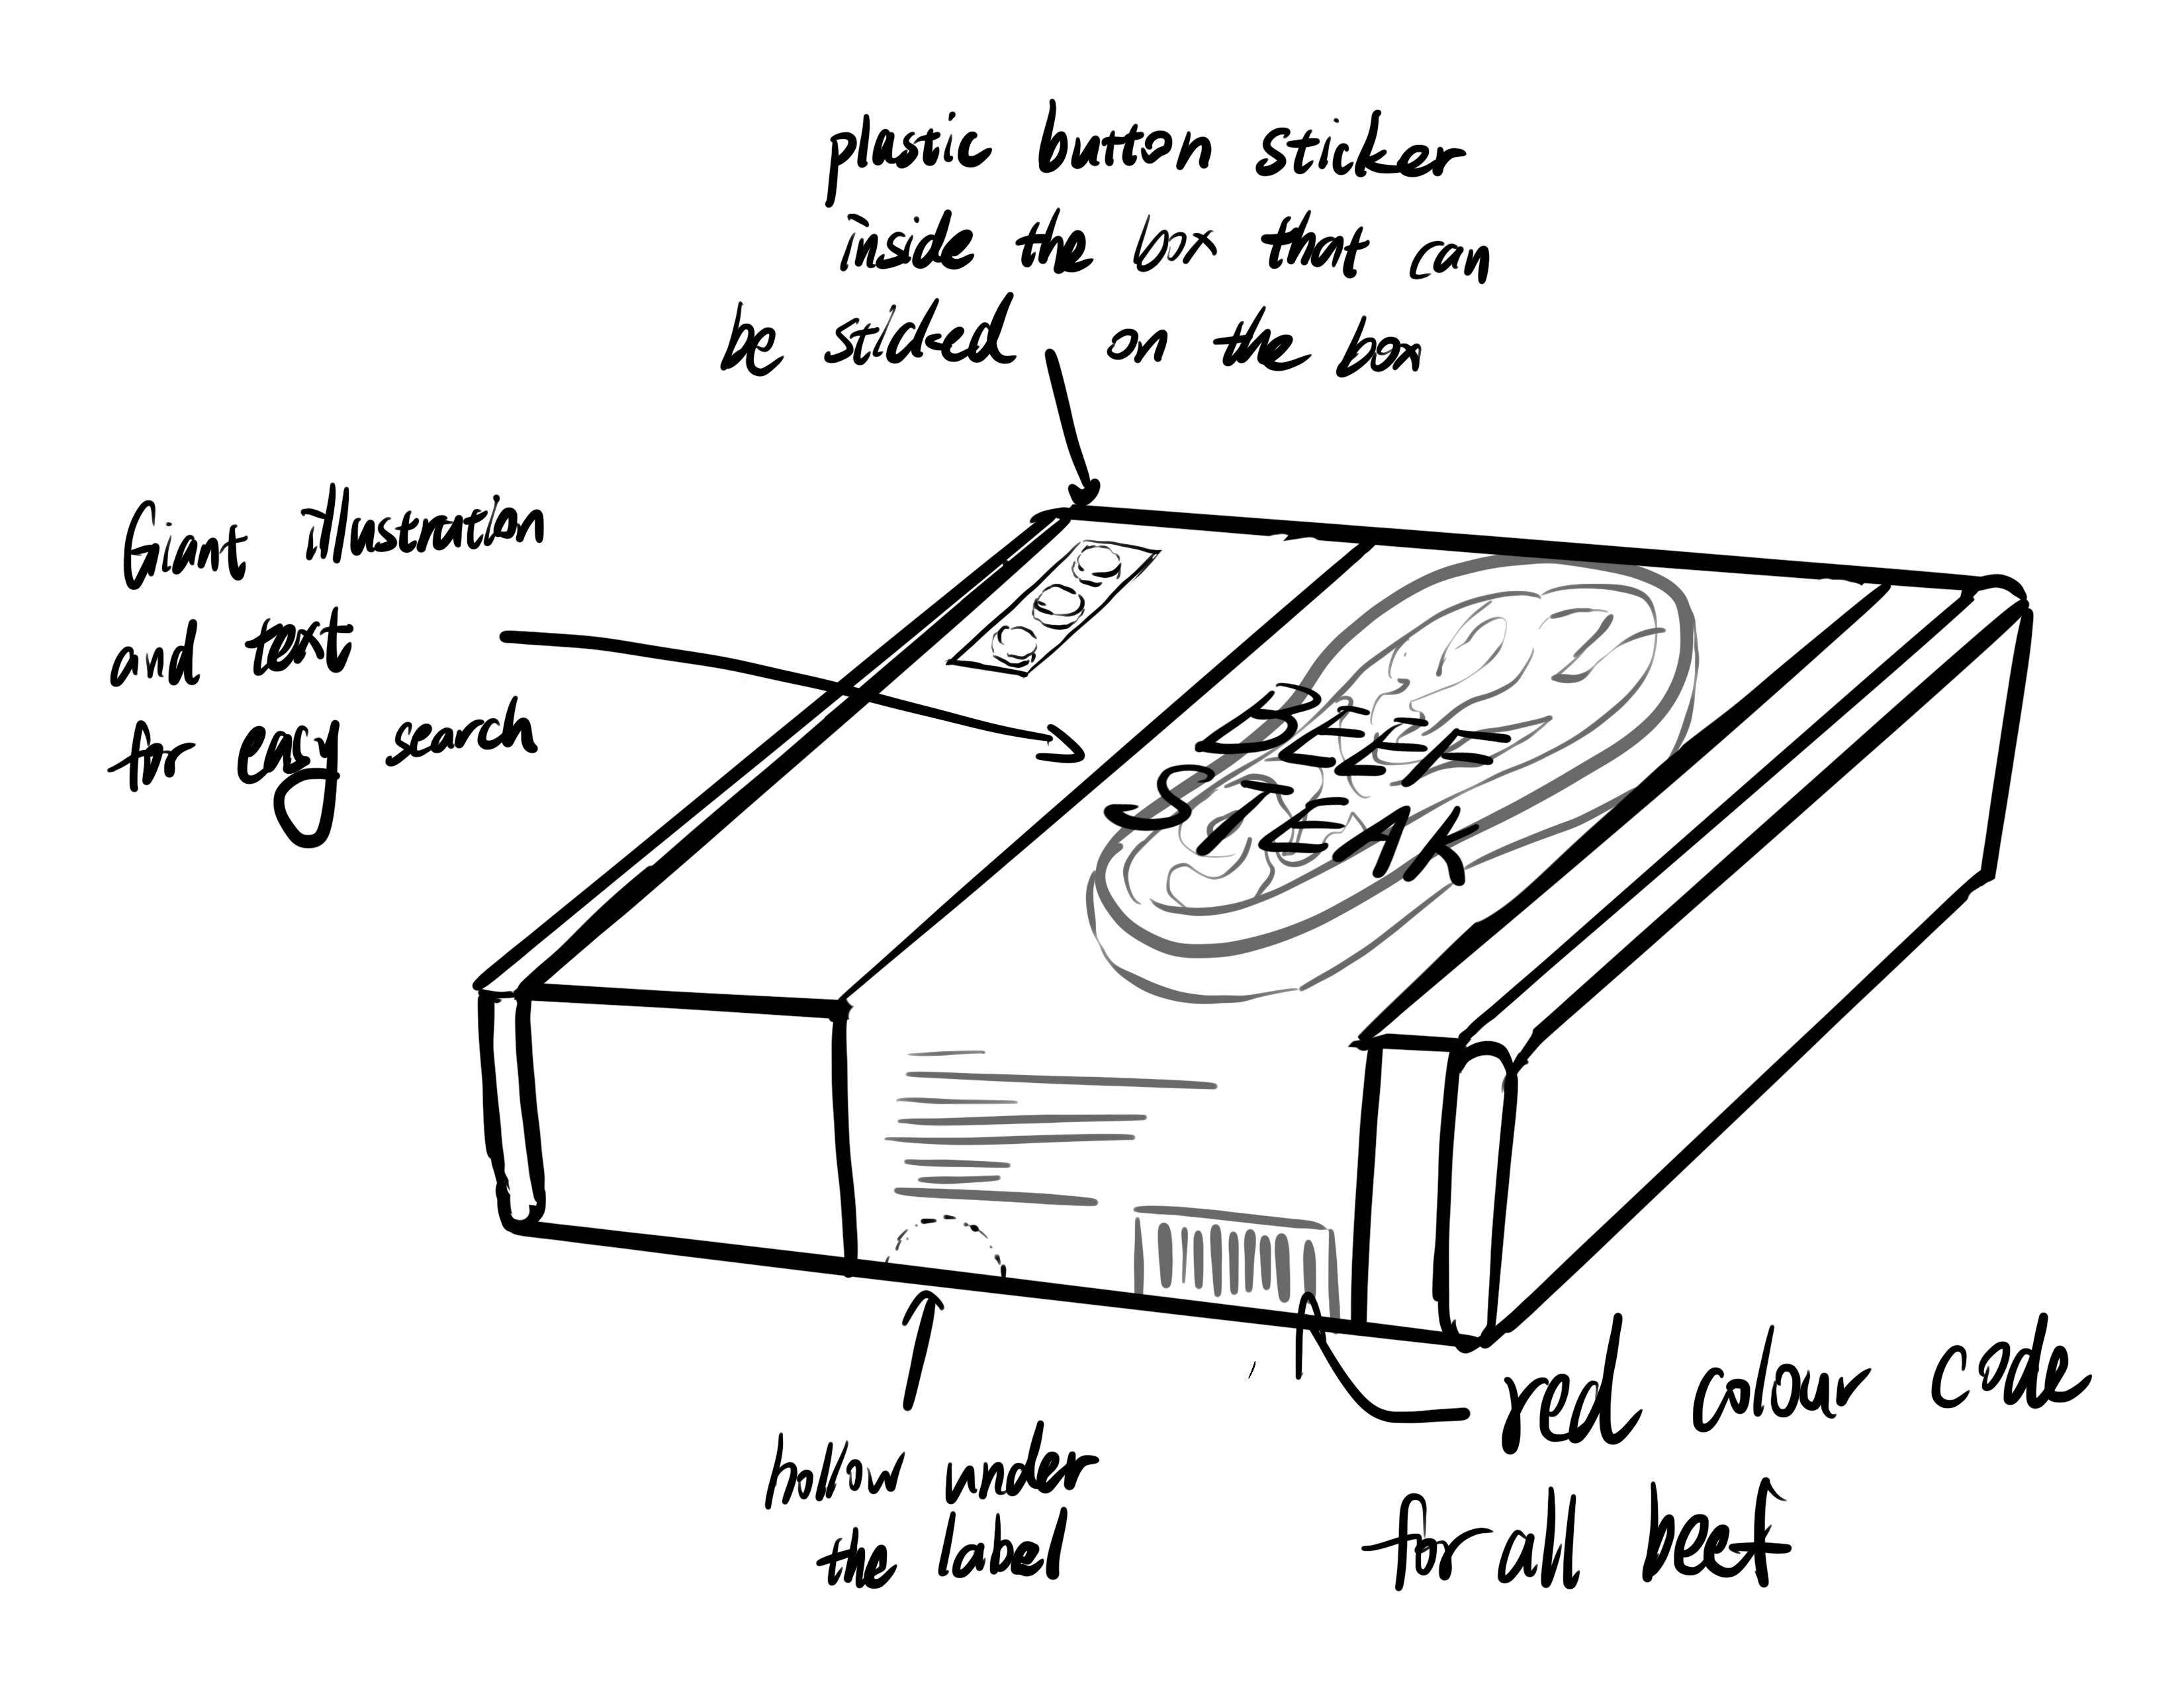 plastic button sticker
inside the box that can
be sticked on the box
Giant illustration
and text
for easy search
BEEF
STEAK
hollow under
the label
red colour code
for all beef